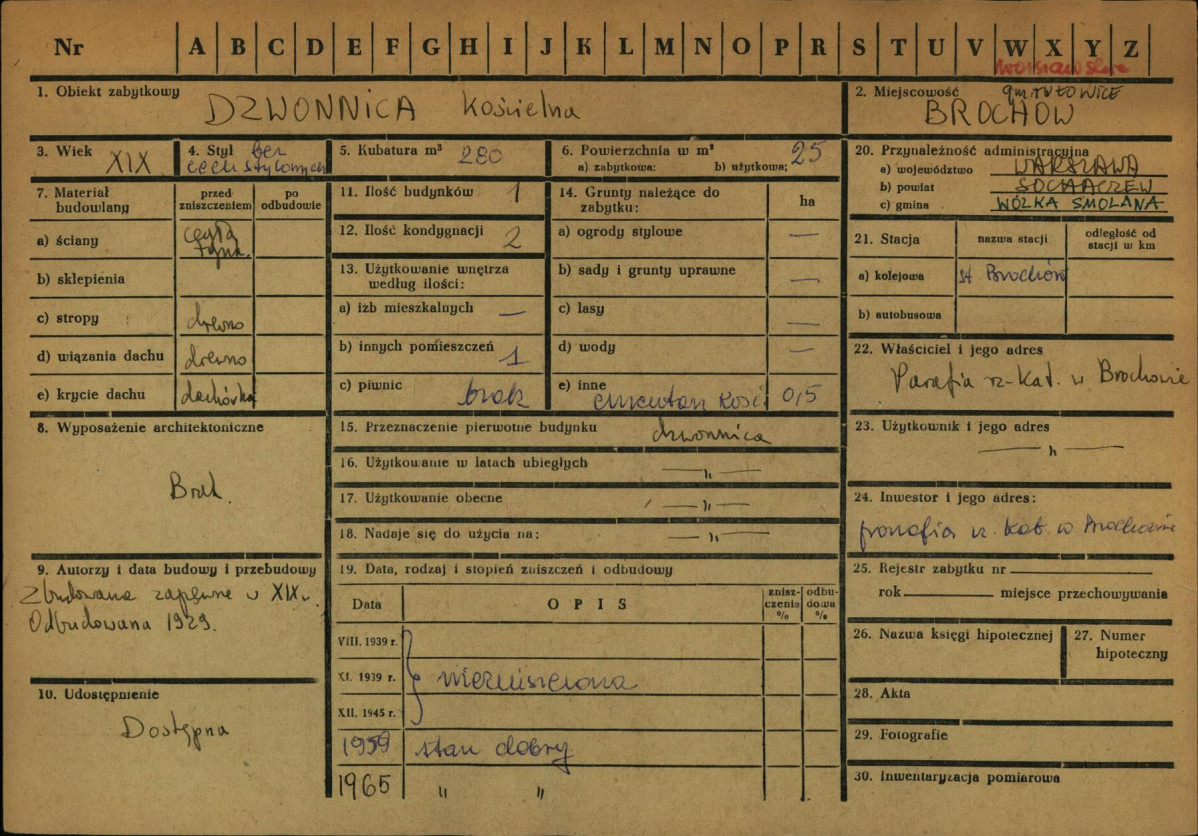 Nr A B C D E F G H I J K L M N O P R S T U V W X Y Z
warszawskie
1. Obiekt zabytkowy DZWONNICA kościelna
2. Miejscowość gm. TUŁOWICE
BROCHÓW
3. Wiek XIX
4. Styl bez
cech stylowych
5. Kubatura m³ 280
6. Powierzchnia w m² 25
a) zabytkowa: b) użytkowa;
7. Materiał budowlany
przed zniszczeniem
po odbudowie
a) ściany cegła
tynk.
b) sklepienia
c) stropy drewno
d) wiązania dachu drewno
e) krycie dachu dachówka
8. Wyposażenie architektoniczne
Brak.
9. Autorzy i data budowy i przebudowy
Zbudowana zapewne w XIX w.
Odbudowana 1929.
10. Udostępnienie
Dostępna
11. Ilość budynków 1
12. Ilość kondygnacji 2
13. Użytkowanie wnętrza
według ilości:
a) izb mieszkalnych —
b) innych pomieszczeń 1
c) piwnic brak
14. Grunty należące do
zabytku:
ha
a) ogrody stylowe —
b) sady i grunty uprawne —
c) lasy —
d) wody —
e) inne cmentarz kości 0,5
15. Przeznaczenie pierwotne budynku dzwonnica
16. Użytkowanie w latach ubiegłych — „ —
17. Użytkowanie obecne — „ —
18. Nadaje się do użycia na: — „ —
19. Data, rodzaj i stopień zniszczeń i odbudowy
Data
OPIS
znisz-
czenia
%
odbu-
dowa
%
VIII. 1939 r.
XI. 1939 r. niezniszczona
XII. 1945 r.
1959 stan dobry
1965 „ „
20. Przynależność administracyjna
a) województwo WARSZAWA
b) powiat SOCHACZEW
c) gmina WÓZKA SMOLANA
21. Stacja
nazwa stacji
odległość od
stacji w km
a) kolejowa st Brochów
b) autobusowa
22. Właściciel i jego adres
Parafia rz-Kat. w Brochowie
23. Użytkownik i jego adres
— „ —
24. Inwestor i jego adres:
parafia rz. Kat. w Brochowie
25. Rejestr zabytku nr
rok miejsce przechowywania
26. Nazwa księgi hipotecznej
27. Numer
hipoteczny
28. Akta
29. Fotografie
30. Inwentaryzacja pomiarowa